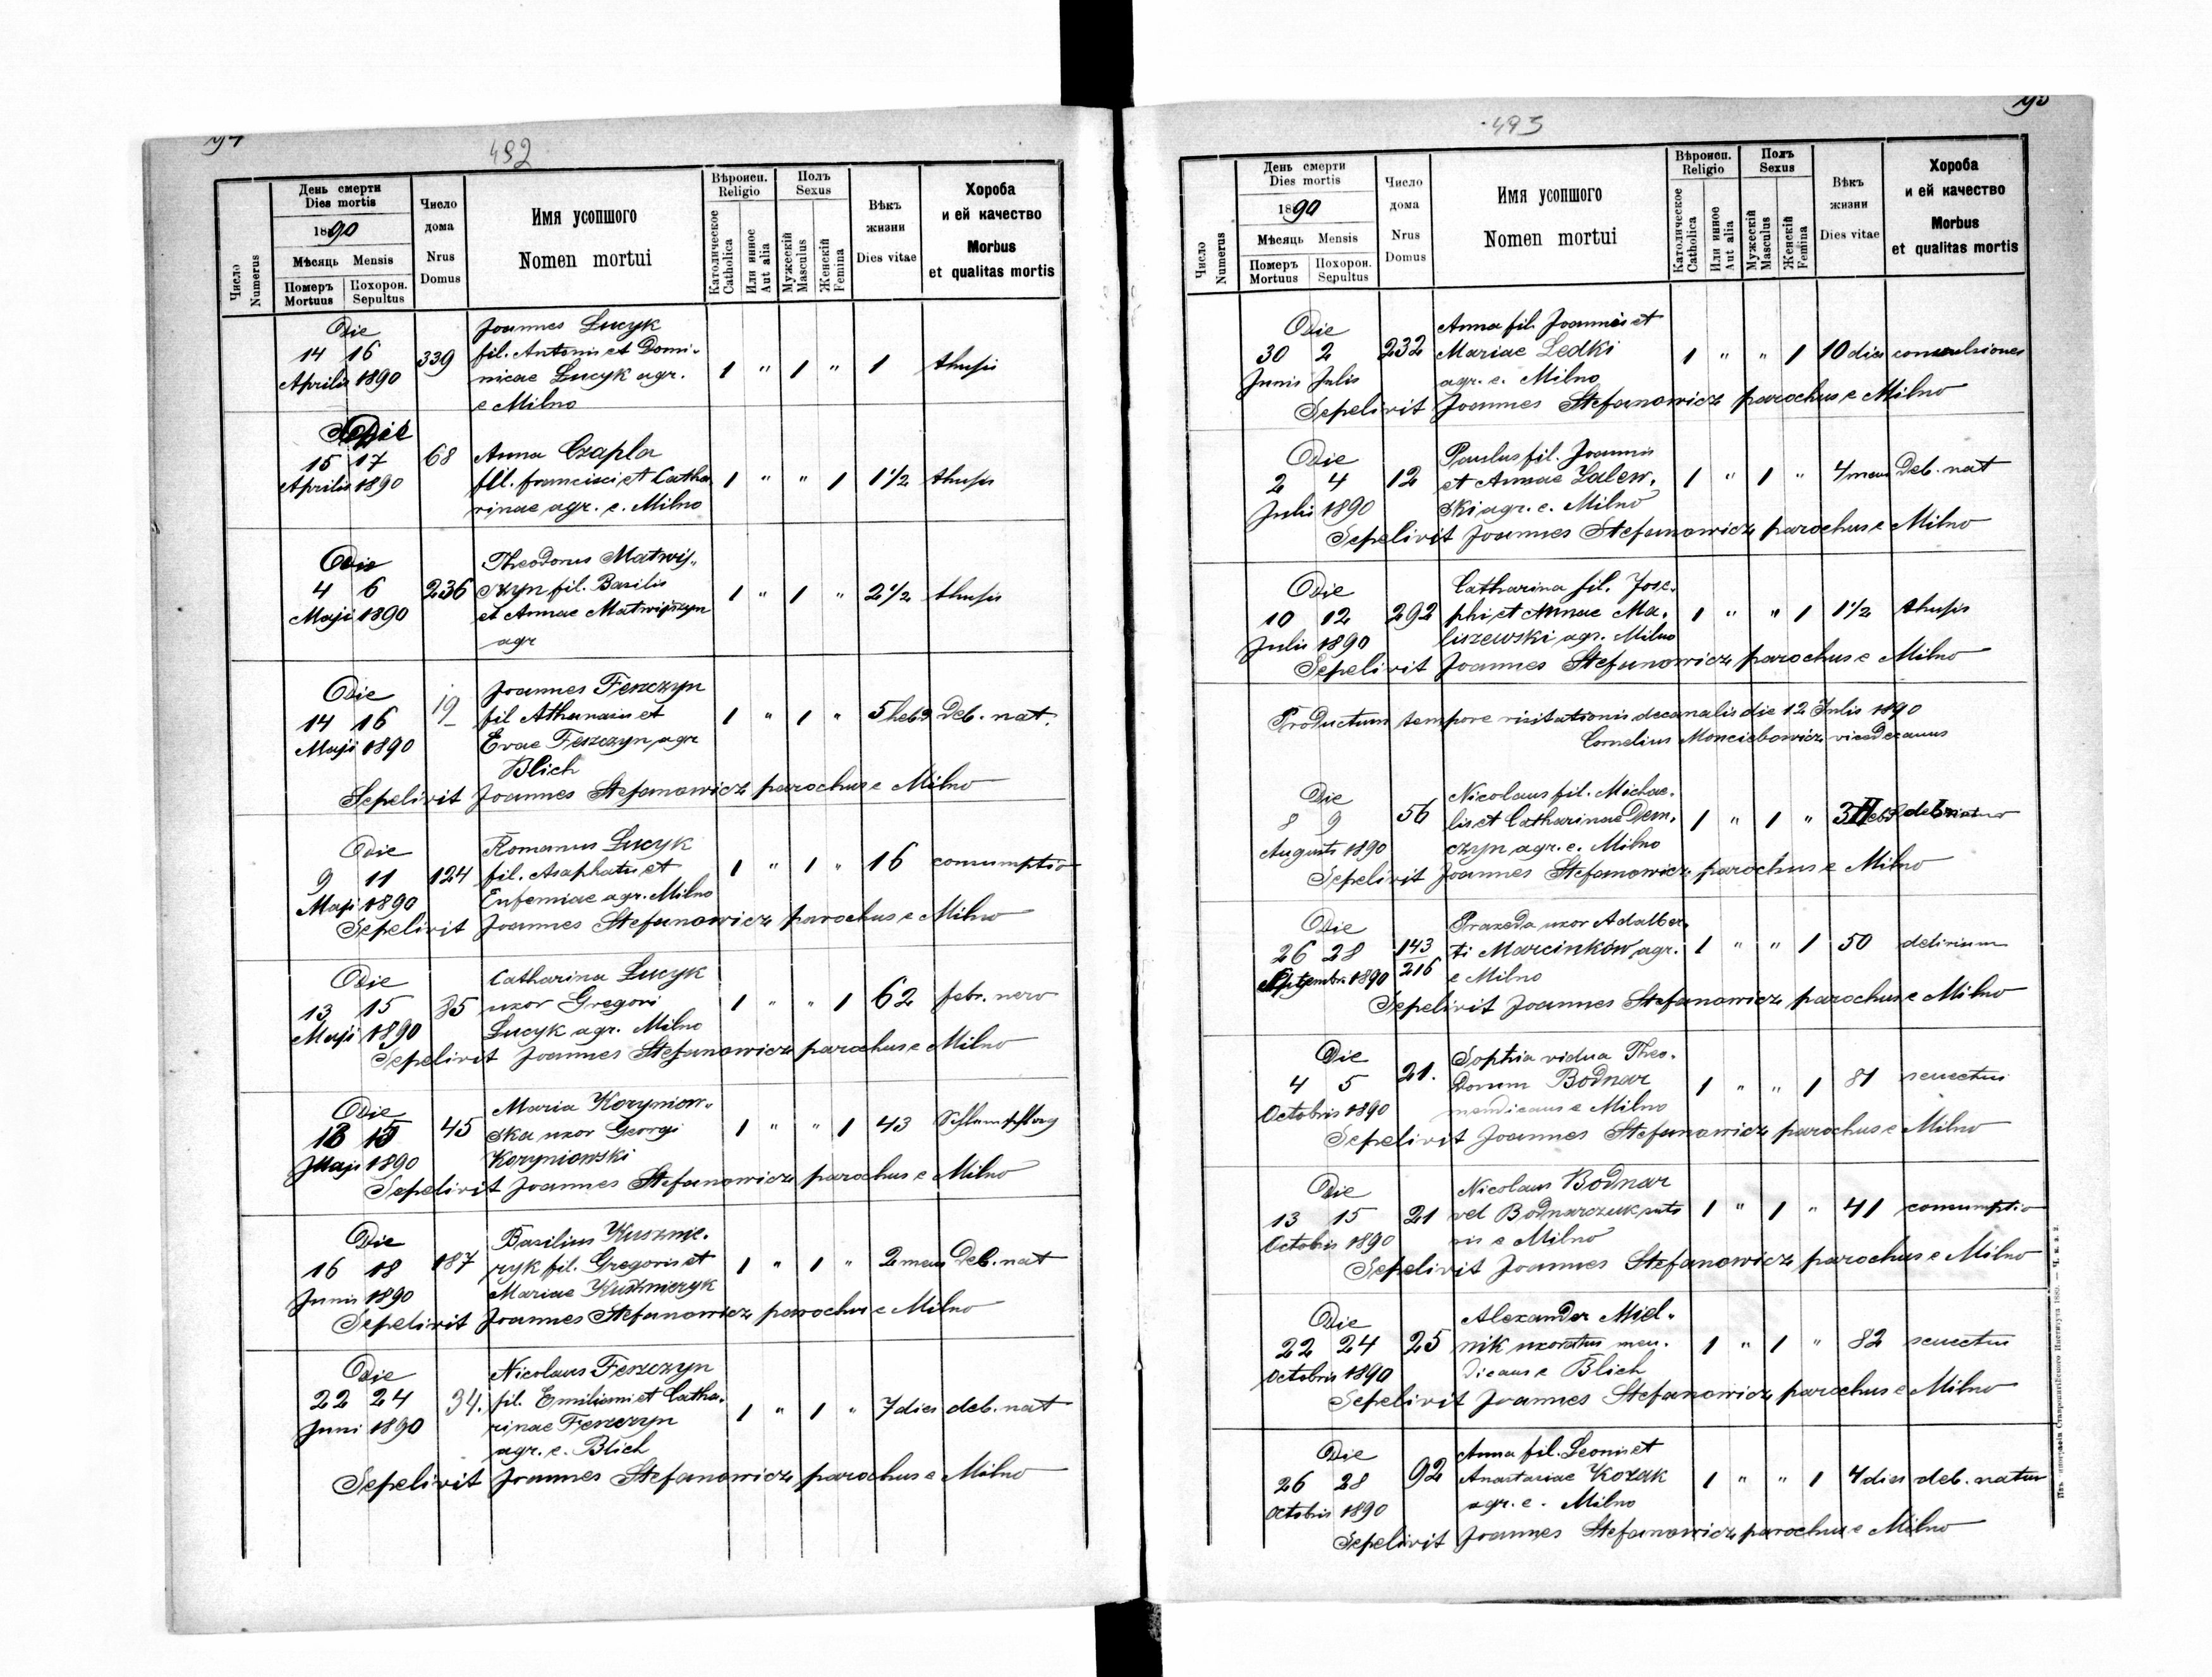 94
492
День смерти
Dies mortis
1890
Мѣсяць Mensis
Померъ Mortuus
Похорон. Sepultus
Число Numerus
Число дома
Nrus Domus
Имя усопшого
Nomen mortui
Вѣроисп. Religio
Католическое Catholica
Или инное Aut alia
Полъ Sexus
Мужескій Masculus
Женскій Femina
Вѣкъ жизни
Dies vitae
Хороба и ей качество
Morbus et qualitas mortis
Die Joannes Lucyk
14 16 339 fil. Antonii et Domi-
Aprilis 1890 nicae Lucyk agr. 1 " 1 " 1 thusis
e Milno
Die
15 17 68 Anna Czapla
Aprilis 1890 fil. francisci et Catha 1 " " 1 1½ thusis
rinae agr. e. Milno
Die Theodorus Matwij-
4 6 236 szyn fil. Basilii 1 " 1 " 2½ thusis
Maji 1890 et Annae Matwijszyn
agr
Die Joannes Feszczyn
14 16 19 fil Athanasii et 1 " 1 " 5 heb9 Deb. nat.
Maji 1890 Evae Feszczyn agr
Blich
Sepelivit Joannes Stefanowicz parochus e Milno
Die Romanus Lucyk
9 11 124 fil. Asaphatii et 1 " 1 " 16 comumptio
Maji 1890 Eufemiae agr. Milno
Sepelivit Joannes Stefanowicz parochus e Milno
Die Catharina Lucyk
13 15 35 uxor Gregori 1 " " 1 62 febr. nerv
Maji 1890 Lucyk agr. Milno
Sepelivit Joannes Stefanowicz parochus e Milno
Die Maria Koryniow-
13 15 45 ska uxor Georgi 1 " " 1 43
Maji 1890 Koryniowski
Sepelivit Joannes Stefanowicz parochus e Milno
Die Basilius Kusznie-
16 18 187 ryk fil. Gregorii et 1 " 1 " 2 mens Deb. nat
Junii 1890 Mariae Kusznieryk
Sepelivit Joannes Stefanowicz parochus e Milno
Die Nicolaus Feszczyn
22 24 34. fil. Emiliani et Catha-
Juni 1890 rinae Feszczyn 1 " 1 " 7 dies deb. nat
agr. e. Blich
Sepelivit Joannes Stefanowicz parochus e Milno
493
День смерти
Dies mortis
1890
Мѣсяць Mensis
Померъ Mortuus
Похорон. Sepultus
Число Numerus
Число дома
Nrus Domus
Имя усопшого
Nomen mortui
Вѣроисп. Religio
Католическое Catholica
Или инное Aut alia
Полъ Sexus
Мужескій Masculus
Женскій Femina
Вѣкъ жизни
Dies vitae
Хороба и ей качество
Morbus et qualitas mortis
Die Anna fil. Joannis et
30 2 232 Mariae Ledki 1 " " 1 10 dies convulsiones
Junii Julii agr. e. Milno
Sepelivit Joannes Stefanowicz parochus e Milno
Die Paulus fil. Joannis
2 4 12 et Annae Zalew- 1 " 1 " 4 mens Deb. nat
Julii 1890 ski agr. e. Milno
Sepelivit Joannes Stefanowicz parochus e Milno
Die Catharina fil. Jose-
10 12 292 phi et Annae Ma- 1 " " 1 1½ thusis
Julii 1890 liszewski agr. Milno
Sepelivit Joannes Stefanowicz parochus e Milno
Productum tempore visitationis decanalis die 12 Julii 1890
Cornelius Monciebowicz vicedecanus
Die Nicolaus fil. Michae-
8 9 56 lis et Catharinae Dem- 1 " 1 "
Augusti 1890 czyn agr. e. Milno
Sepelivit Joannes Stefanowicz parochus e Milno
Die Praxeda uxor Adalber-
26 28 143 ti Marcinków agr. 1 " " 1 50 delirium
Septembris 1890 216 e Milno
Sepelivit Joannes Stefanowicz parochus e Milno
Die Sophia vidua Theo-
4 5 21. dorum Bodnar 1 " " 1 81 senectus
Octobris 1890 mendicans e Milno
Sepelivit Joannes Stefanowicz parochus e Milno
Die Nicolaus Bodnar
13 15 21 vel Bodnarczuk 1 " 1 " 41 comumptio
Octobris 1890 e Milno
Sepelivit Joannes Stefanowicz parochus e Milno
Die Alexander Miel-
22 24 25 nik uxoratus men- 1 " 1 " 82 senectus
Octobris 1890 dicans e Blich
Sepelivit Joannes Stefanowicz parochus e Milno
Die Anna fil. Leonis et
26 28 92 Anastasiae Kozak 1 " " 1 4 dies deb. natur
Octobris 1890 agr. e. Milno
Sepelivit Joannes Stefanowicz parochus e Milno